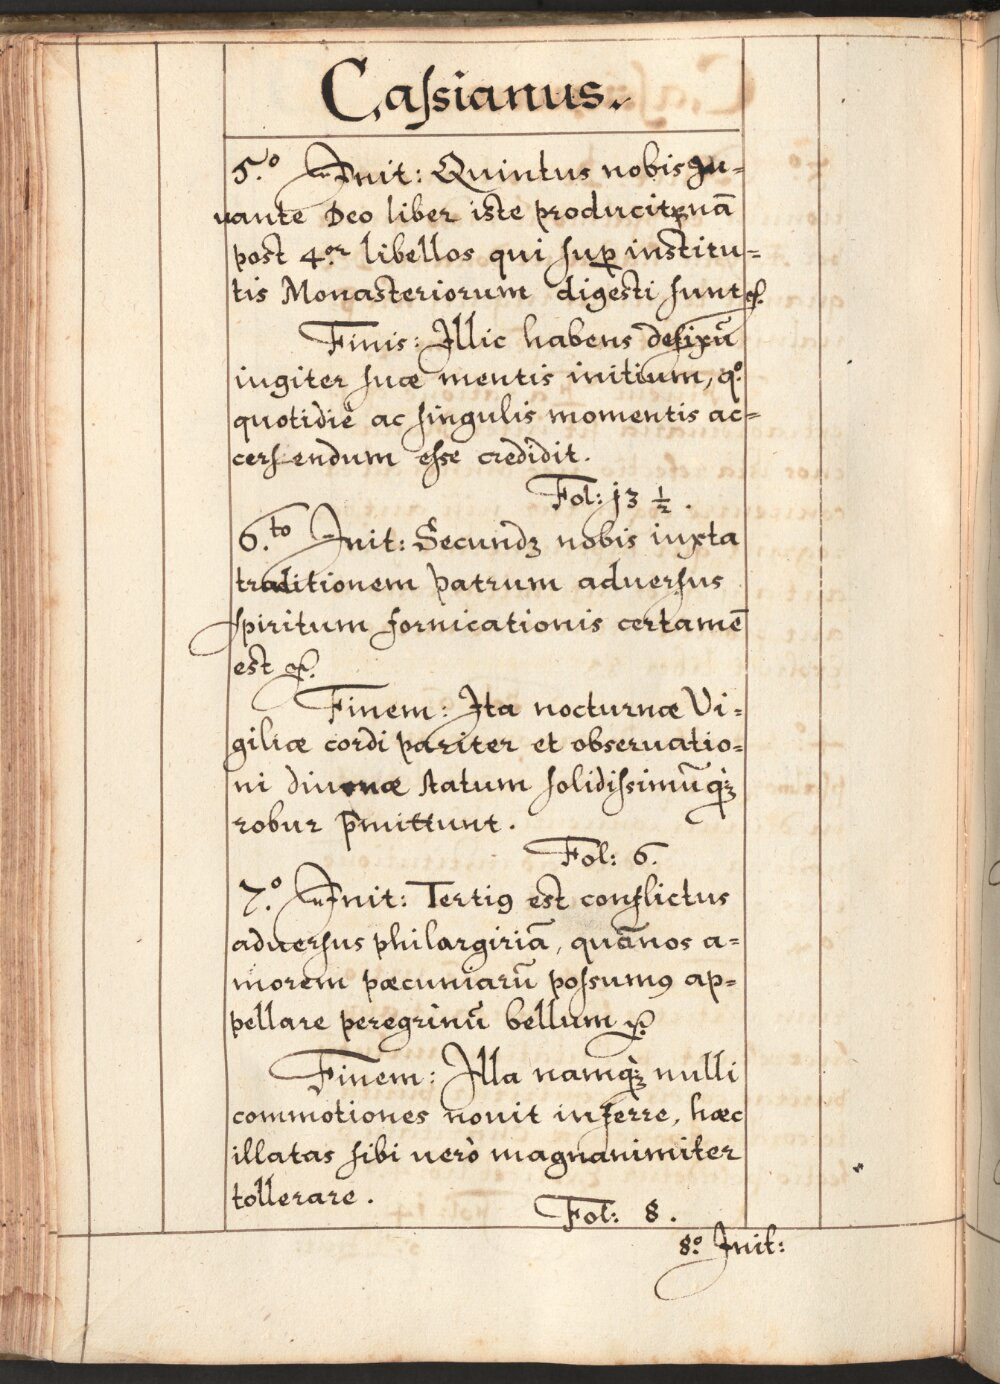 Caſsianus.
5.º Init: Quintus nobis Iu-
uante Deo liber iste producitur nã
post 4.or libellos qui sup institu-
tis Monasteriorum digesti sunt &.
Finis: Illic habens defixũ
iugiter suæ mentis initium, qº
quotidiè ac singulis momentis ac-
cersendum esse credidit.
Fol: 13 ½.
6.to Init: Secundũ nobis iuxta
traditionem patrum aduersus
spiritum fornicationis certamẽ
est &.
Finem: Ita nocturnæ Vi-
giliæ cordi pariter et obseruatio-
ni diurnæ statum solidissimũq3
robur p̃mittunt.
Fol: 6.
7.º Init: Tertiꝰ est conflictus
aduersus philargiriã, quã nos a-
morem pæcuniarũ possumꝰ ap-
pellare peregrinũ bellum &.
Finem: Illa namq3 nulli
commotiones nouit inferre, hæc
illatas sibi uerò magnanimiter
tollerare.
Fol: 8.
8.º Init: